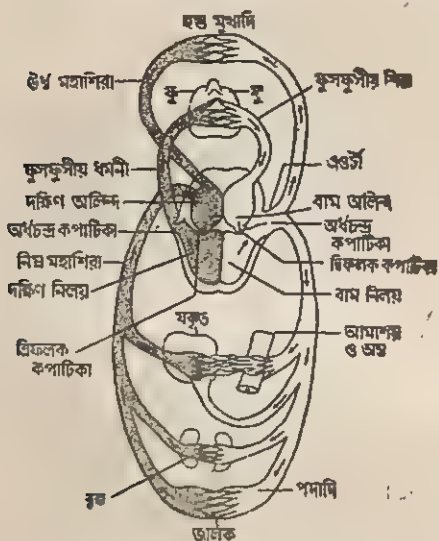 হস্ত মুখাদি
ঊর্ধ্ব মহাশিরা
ফুসফুসীয় শিরা
ফুসফুসীয় ধমনী
এওর্টা
দক্ষিণ অলিন্দ
বাম অলিন্দ
অর্ধচন্দ্র কপাটিকা
অর্ধচন্দ্র
কপাটিকা
নিম্ন মহাশিরা
দ্বিফলক কপাটিকা
দক্ষিণ নিলয়
বাম নিলয়
যকৃৎ
আমাশয়
ও অন্ত্র
ত্রিফলক
কপাটিকা
বৃক্ক
পদাদি
জালক